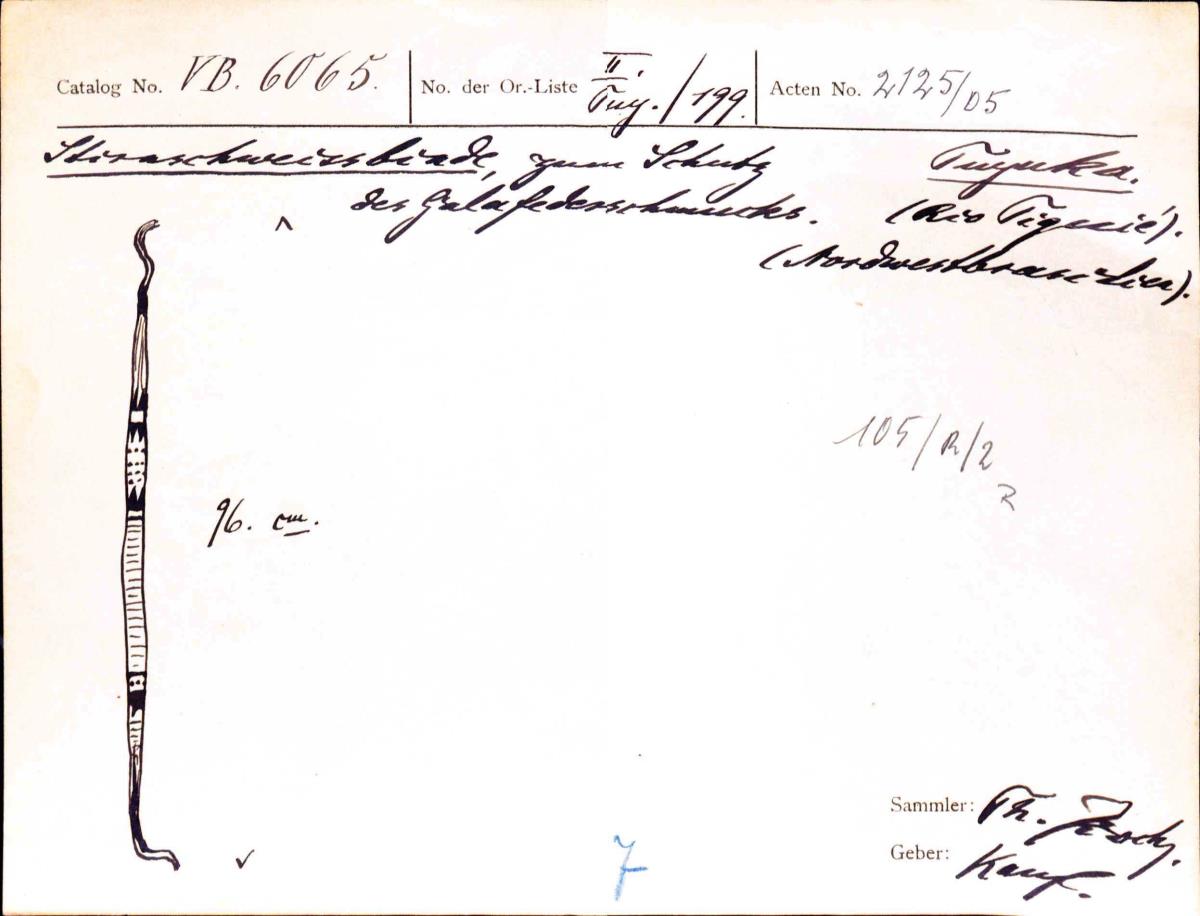 Catalog No. VB. 6065. No. der Or.-Liste II. Tuy./199. Acten No. 2125/05
Stirnschweissbinde, zum Schutz Tuyuka.
des Galafederschmucks. (Rio Tiquié).
(Nordwestbrasilien).
105/R/2
R
96. cm.
Sammler: Th. Koch.
Geber: Kauf.
7